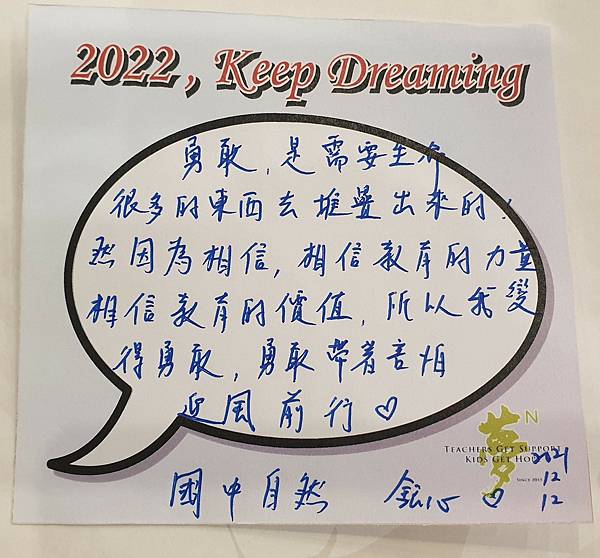 2022 , Keep Dreaming
勇敢,是需要
很多的東西去堆疊出來的!
然因為相信,相信教育的力量
相信教育的價值,所以我變
得勇敢,勇敢帶著害怕
迎風前行♡
夢N
TEACHERS GET SUPPORT
KIDS GET
國中自然 ♡
2021
12
12